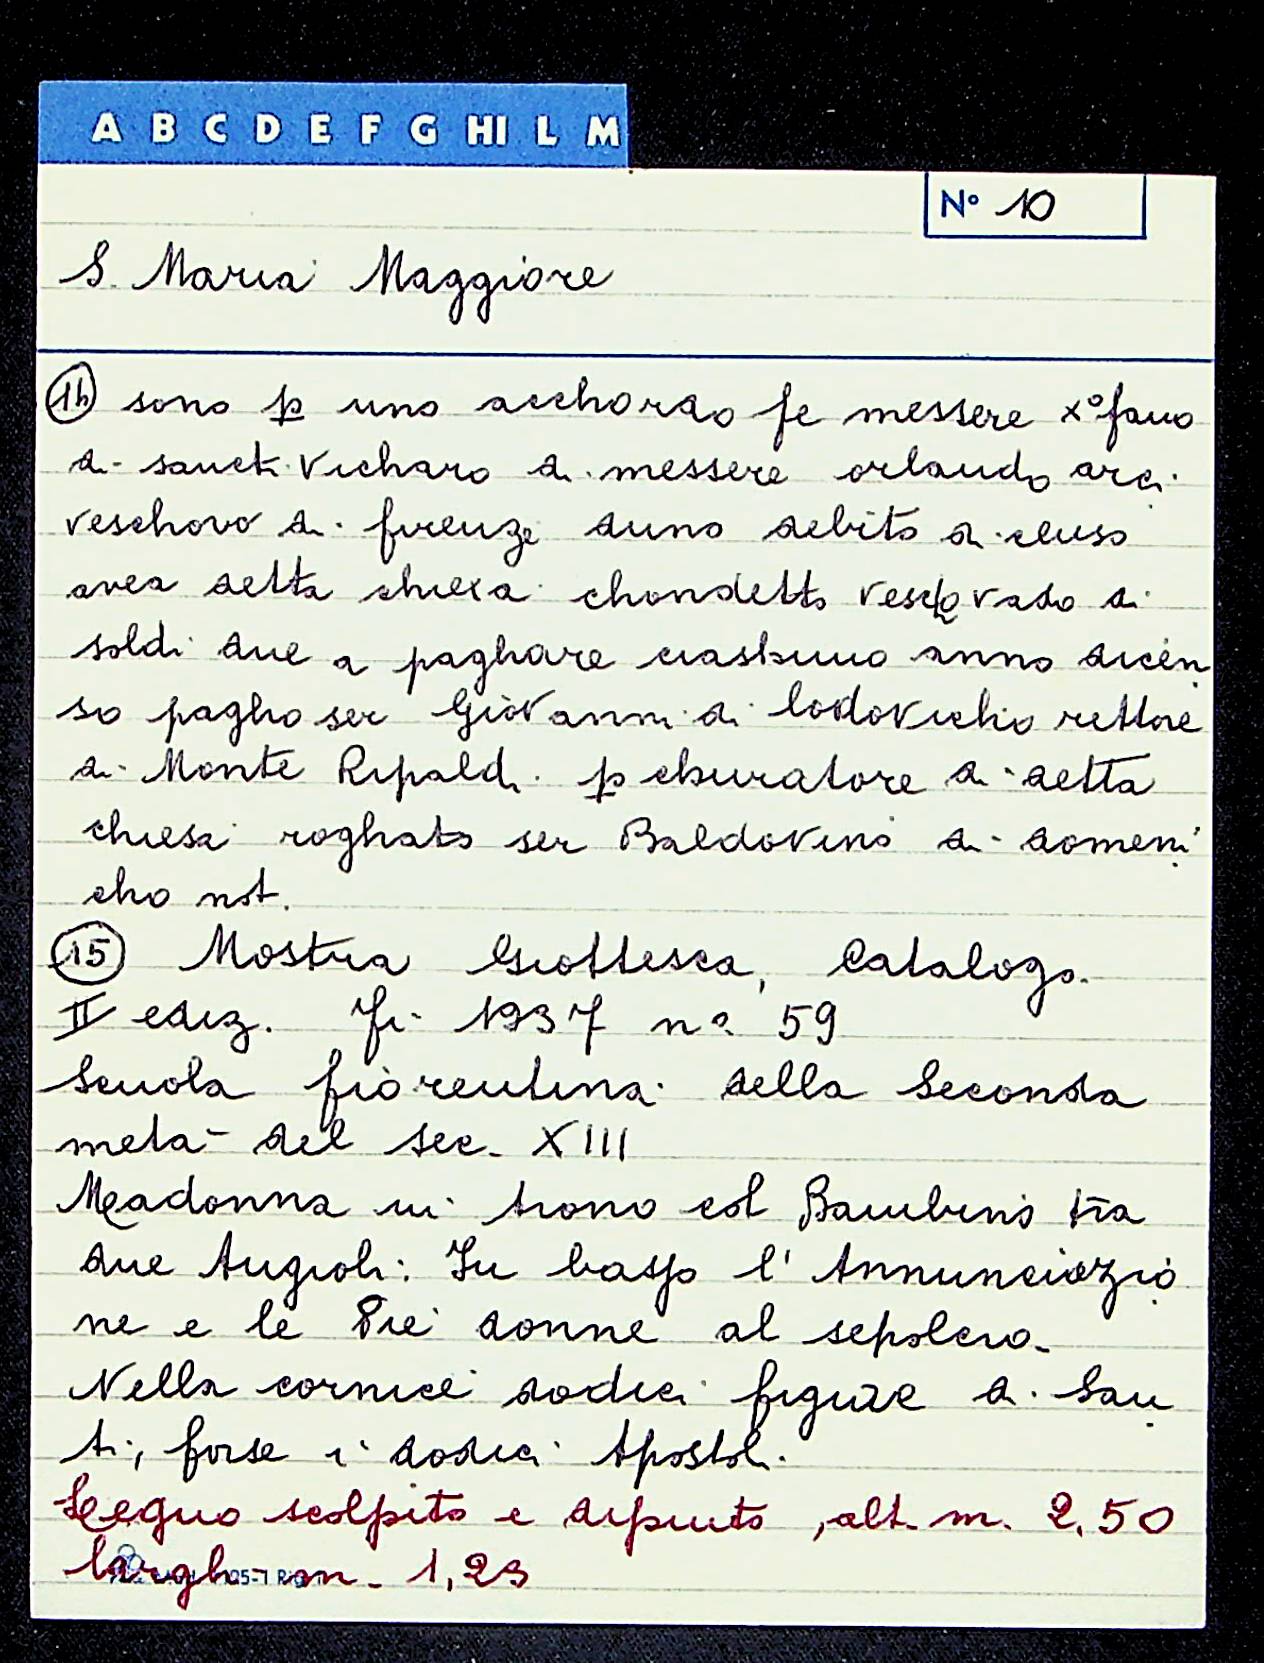 A B C D E F G HI L M
N° 10
S. Maria Maggiore
14 sono p uno acchordo fe messere x°fano
di sancti vichario di messere orlando arci
veschovo di firenze duno debito di censo
avea detta chiesa chondetto veschovado di
soldi due a paghare ciaskuno anno dicen
so pagho ser Giovanni di lodovicho rettore
di Monte Ripaldi pchuratore di detta
chiesa roghato ser Baldovino di domeni
cho not.
15 Mostra Giottesca, Catalogo.
II ediz. Fi. 1937 n° 59
Scuola fiorentina della Seconda
metà del sec. XIII
Madonna in trono col Bambino tra
due Angioli: In basso l'Annunciazio
ne e le Pie donne al sepolcro.
Nella cornice dodici figure di San
ti, forse i dodici Apostoli.
Legno scolpito e dipinto, alt. m. 2,50
largh. m. 1,23